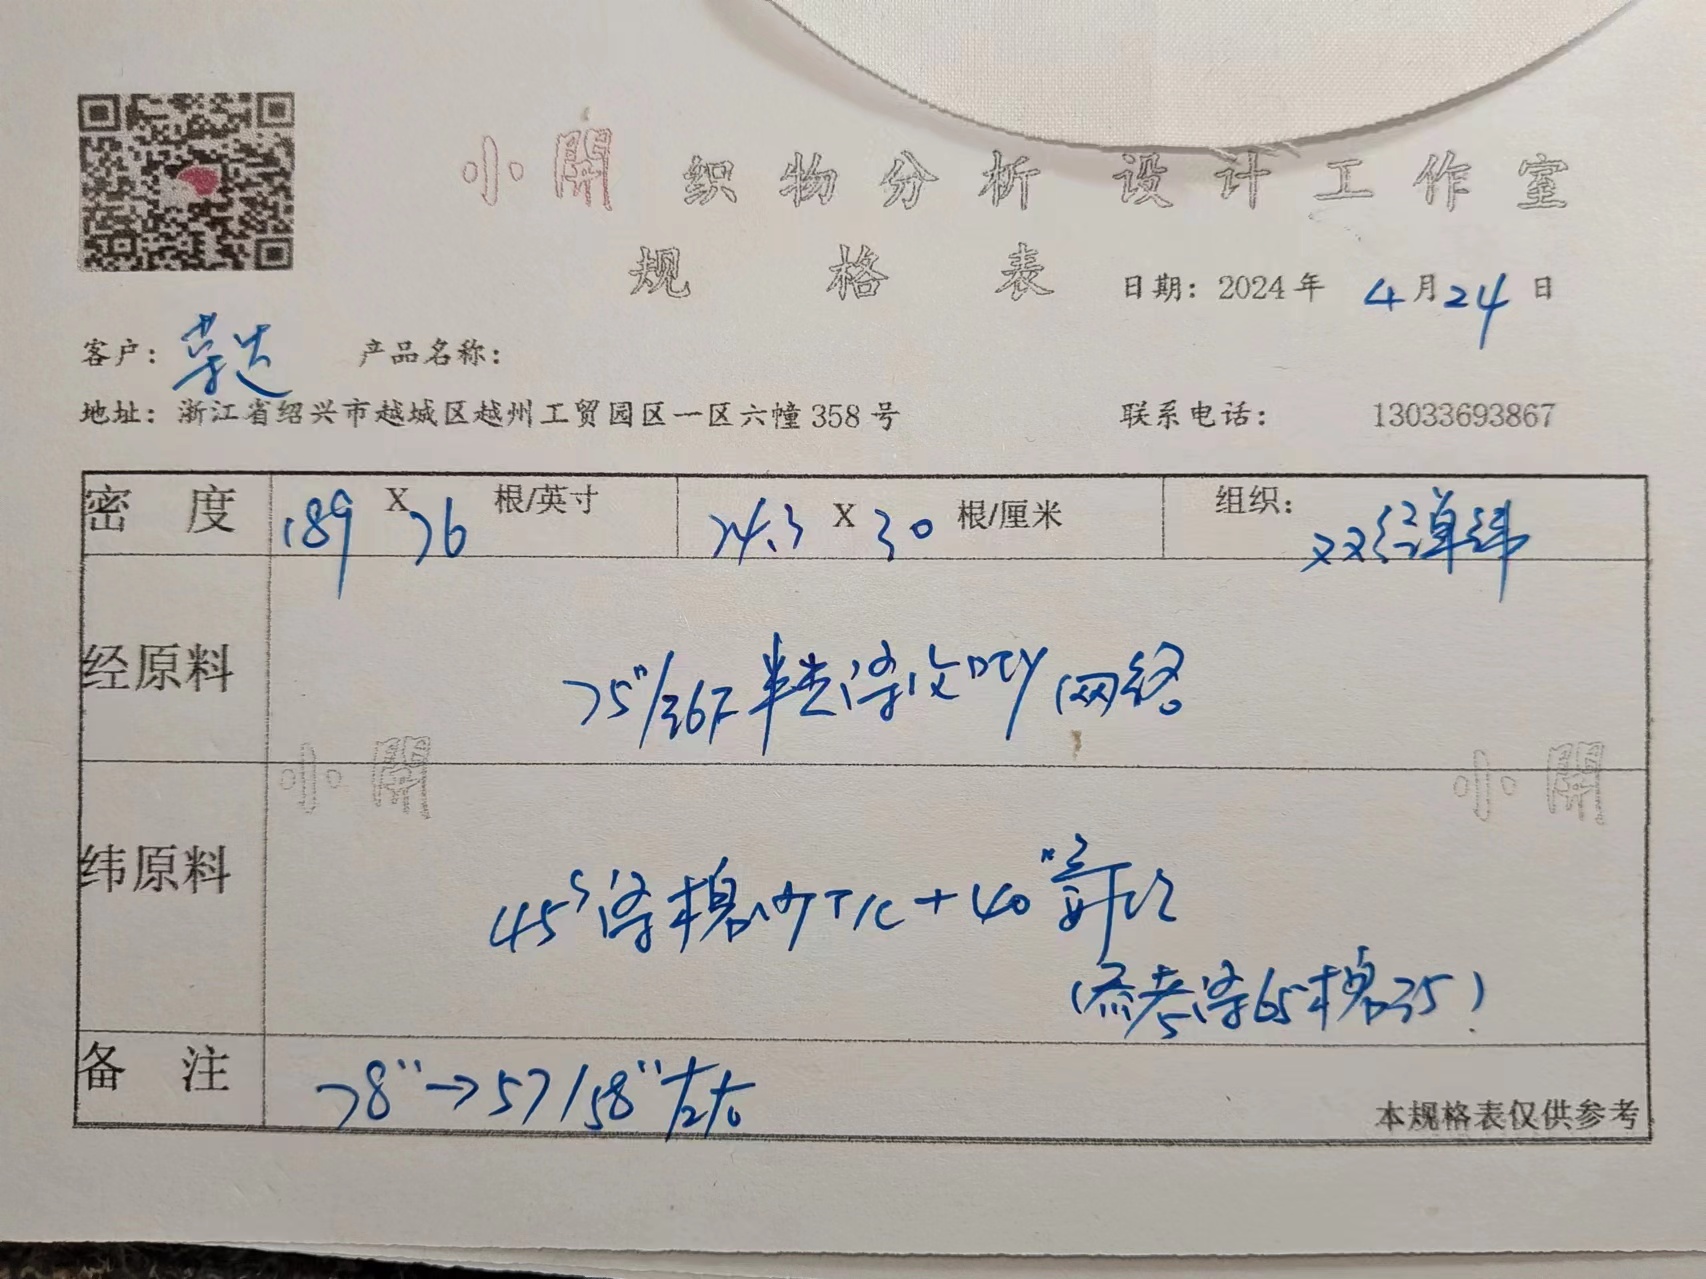 小開 织物分析 设计工作室
规格表
日期：2024年 4月24日
客户： 莘达 产品名称：
地址：浙江省绍兴市越城区越州工贸园区一区六幢358号 联系电话： 13033693867
密度 189 X 76 根/英寸 74.3 X 30 根/厘米 组织： 双经单纬
经原料 75D/36F 半光涤纶DTY 网络
小開 小開
纬原料 45S涤棉纱T/C+40D氨纶
(参考涤65棉35)
备注 78"→57/58"左右
本规格表仅供参考